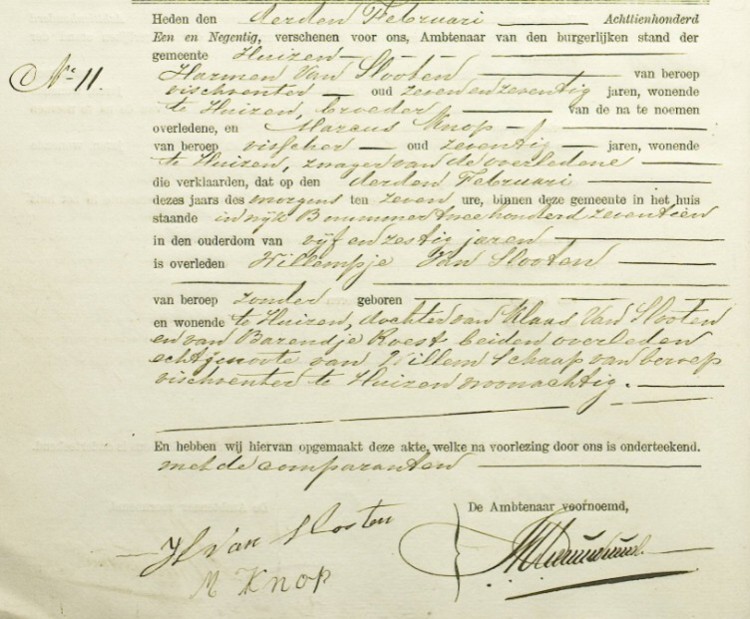 Heden den derden Februari Achttienhonderd
Een en Negentig, verschenen voor ons, Ambtenaar van den burgerlijken stand der
gemeente Huizen
Nr. 11.
Harmen Van Slooten van beroep
vischventer oud zeven en zeventig jaren, wonende
te Huizen, broeder van de na te noemen
overledene, en Marcus Knop
van beroep visscher oud zeventig jaren, wonende
te Huizen, zwager van de overledene
die verklaarden, dat op den derden Februari
dezes jaars des morgens ten zeven ure, binnen deze gemeente in het huis
staande in wijk B nummer twee honderd zeventien
in den ouderdom van vijf en zestig jaren
is overleden Willempje Van Slooten
van beroep zonder geboren
en wonende te Huizen, dochter van Klaas Van Slooten
en van Barendje Roest beiden overleden
echtgenoote van Willem Schaap van beroep
vischventer te Huizen woonachtig.
En hebben wij hiervan opgemaakt deze akte, welke na voorlezing door ons is onderteekend.
met de comparanten
De Ambtenaar voornoemd,
H Van Slooten
M Knop